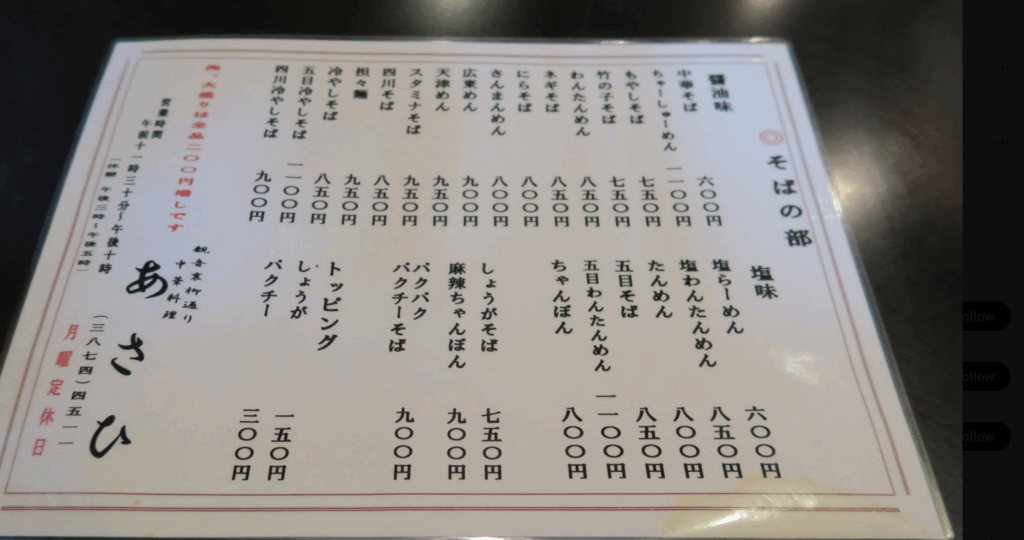 ◎そばの部
醤油味
中華そば 六〇〇円
ちゃーしゅーめん 一一〇〇円
もやしそば 七五〇円
竹の子そば 七五〇円
わんたんめん 八五〇円
ネギそば 八五〇円
にらそば 八〇〇円
さんまんめん 八〇〇円
広東めん 九〇〇円
天津めん 九五〇円
スタミナそば 九五〇円
四川そば 八五〇円
担々麺 九五〇円
冷やしそば 八五〇円
五目冷やしそば 一一〇〇円
四川冷やしそば 九〇〇円
塩味
塩らーめん 六〇〇円
塩わんたんめん 八五〇円
たんめん 八〇〇円
五目そば 八五〇円
五目わんたんめん 一一〇〇円
ちゃんぽん 八〇〇円
しょうがそば 七五〇円
麻辣ちゃんぽん 九〇〇円
パクパク
パクチーそば 九〇〇円
トッピング
しょうが 一五〇円
パクチー 三〇〇円
尚、大盛りは全品二〇〇円増しです
営業時間
午前十一時三十分〜午後十時
(休憩 午後三時〜午後五時)
観音裏柳通り
中華料理
あさひ
(三八七四)四五一一
月曜定休日
ollow
ollow
ollow